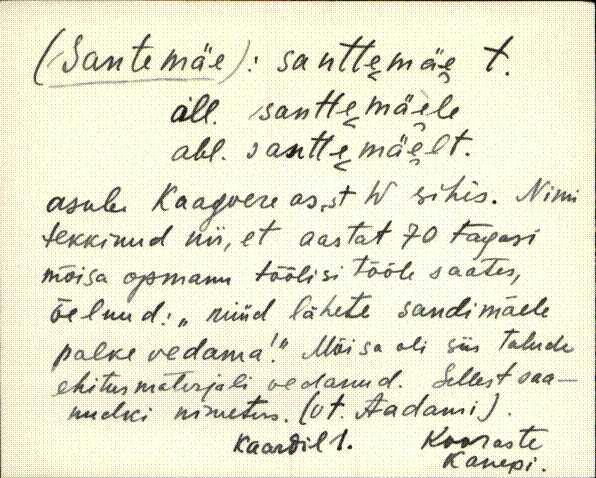 (Santemäe): santtemäe t.
all. santtemäele
abl. santtemäelt.
asub Kaagvere as.st W sihis. Nimi
tekkinud nii, et aastat 70 tagasi
mõisa opmann töölisi tööle saates,
öelnud: „nüüd lähete sandimäele
palke vedama!" Mõisa oli siis talude
ehitusmaterjali vedanud. Sellest saa-
nudki nimetus. (vt. Aadami).
Kaardil 1. Kooraste
Kanepi.